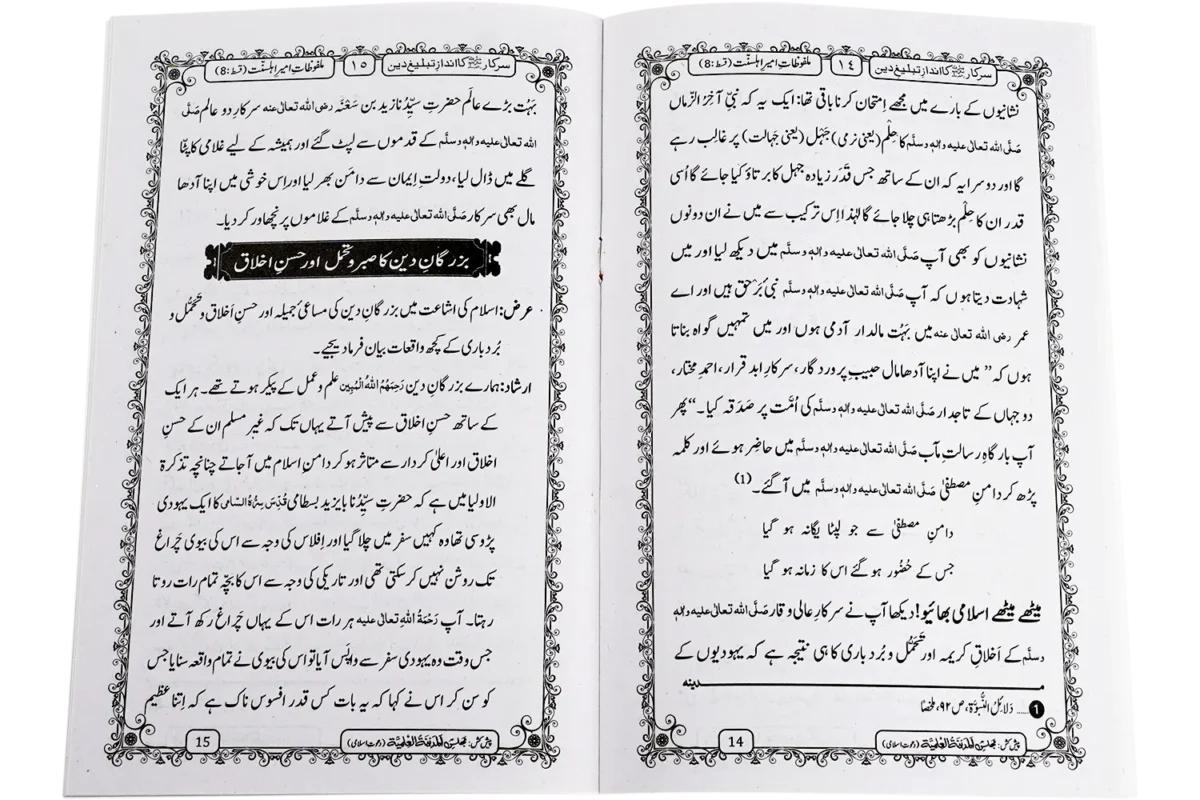 سرکار ﷺ کا اندازِ تبلیغِ دین
١٤
ملفوظاتِ امیرِ اہلسنّت (قسط:8)
نشانیوں کے بارے میں مجھے اِمتحان کرنا باقی تھا: ایک یہ کہ نبیِّ آخِرُ الزّماں
صَلَّی اللہ تعالٰی علیہ واٰلہٖ وسلَّم کا حِلْم (یعنی نرمی) جَہْل (یعنی جَہالت) پر غالِب رہے
گا اور دوسرا یہ کہ ان کے ساتھ جس قَدَر زیادہ جہل کا برتاؤ کیا جائے گا اُسی
قدر ان کا حِلْم بڑھتا ہی چلا جائے گا لہٰذا اِس ترکیب سے میں نے ان دونوں
نشانیوں کو بھی آپ صَلَّی اللہ تعالٰی علیہ واٰلہٖ وسلَّم میں دیکھ لیا اور میں
شہادت دیتا ہوں کہ آپ صَلَّی اللہ تعالٰی علیہ واٰلہٖ وسلَّم نبیِ بَرْحق ہیں اور اے
عمر رضی اللہ تعالٰی عنہ میں بَہُت مالدار آدمی ہوں اور میں تمہیں گواہ بناتا
ہوں کہ ”میں نے اپنا آدھا مال حبیبِ پروردگار، سرکارِ ابد قرار، احمدِ مختار،
دو جہاں کے تاجدار صَلَّی اللہ تعالٰی علیہ واٰلہٖ وسلَّم کی اُمَّت پر صَدَقہ کیا۔“ پھر
آپ بارگاہِ رسالت مآب صَلَّی اللہ تعالٰی علیہ واٰلہٖ وسلَّم میں حاضِر ہوئے اور کلمہ
پڑھ کر دامنِ مصطفٰی صَلَّی اللہ تعالٰی علیہ واٰلہٖ وسلَّم میں آگئے۔ (1)
دامنِ مصطفٰی سے جو لپٹا یگانہ ہو گیا
جس کے حُضُور ہو گئے اس کا زمانہ ہو گیا
میٹھے میٹھے اسلامی بھائیو! دیکھا آپ نے سرکارِ عالی وقار صَلَّی اللہ تعالٰی علیہ واٰلہٖ
وسلَّم کے اَخلاقِ کریمہ اور تَحَمُّل و بُردباری کا ہی نتیجہ ہے کہ یہودیوں کے
مدینہ
1 ..... دَلائلُ النُّبُوَّۃ، ص ۹۲، ملخصًا
پیش کش: مجلس المدینۃ العلمیۃ (دعوتِ اسلامی)
14
سرکار ﷺ کا اندازِ تبلیغِ دین
١٥
ملفوظاتِ امیرِ اہلسنّت (قسط:8)
بَہُت بڑے عالَم حضرتِ سیِّدُنا زید بن سَعْنَہ رضی اللہ تعالٰی عنہ سرکارِ دو عالم صَلَّی
اللہ تعالٰی علیہ واٰلہٖ وسلَّم کے قدموں سے لپٹ گئے اور ہمیشہ کے لیے غلامی کا پٹّا
گلے میں ڈال لیا، دولتِ اِیمان سے دامَن بھر لیا اور اِس خوشی میں اپنا آدھا
مال بھی سرکار صَلَّی اللہ تعالٰی علیہ واٰلہٖ وسلَّم کے غلاموں پر نچھاور کر دیا۔
بزرگانِ دین کا صبر و تحمل اور حسنِ اخلاق
عرض: اسلام کی اشاعت میں بزرگانِ دین کی مساعیِ جمیلہ اور حسنِ اَخلاق و تَحَمُّل و
بُردباری کے کچھ واقعات بیان فرما دیجیے۔
ارشاد: ہمارے بزرگانِ دین رَحِمَھُمُ اللہُ الْمُبِین علم و عمل کے پیکر ہوتے تھے۔ ہر ایک
کے ساتھ حسنِ اخلاق سے پیش آتے یہاں تک کہ غیر مسلم ان کے حسنِ
اخلاق اور اعلیٰ کردار سے متاثر ہو کر دامنِ اسلام میں آجاتے چنانچہ تذکرۃ
الاولیا میں ہے کہ حضرتِ سیِّدُنا بایزید بسطامی قُدِّسَ سِرُّہُ السَّامی کا ایک یہودی
پڑوسی تھا وہ کہیں سفر میں چلا گیا اور اِفلاس کی وجہ سے اس کی بیوی چَراغ
تک روشن نہیں کر سکتی تھی اور تاریکی کی وجہ سے اس کا بچّہ تمام رات روتا
رہتا۔ آپ رَحْمَۃُ اللہِ تعالٰی علیہ ہر رات اس کے یہاں چَراغ رکھ آتے اور
جس وقت وہ یہودی سفر سے واپس آیا تو اس کی بیوی نے تمام واقعہ سنایا جس
کو سن کر اس نے کہا کہ یہ بات کس قدر افسوس ناک ہے کہ اِتنا عظیم
پیش کش: مجلس المدینۃ العلمیۃ (دعوتِ اسلامی)
15